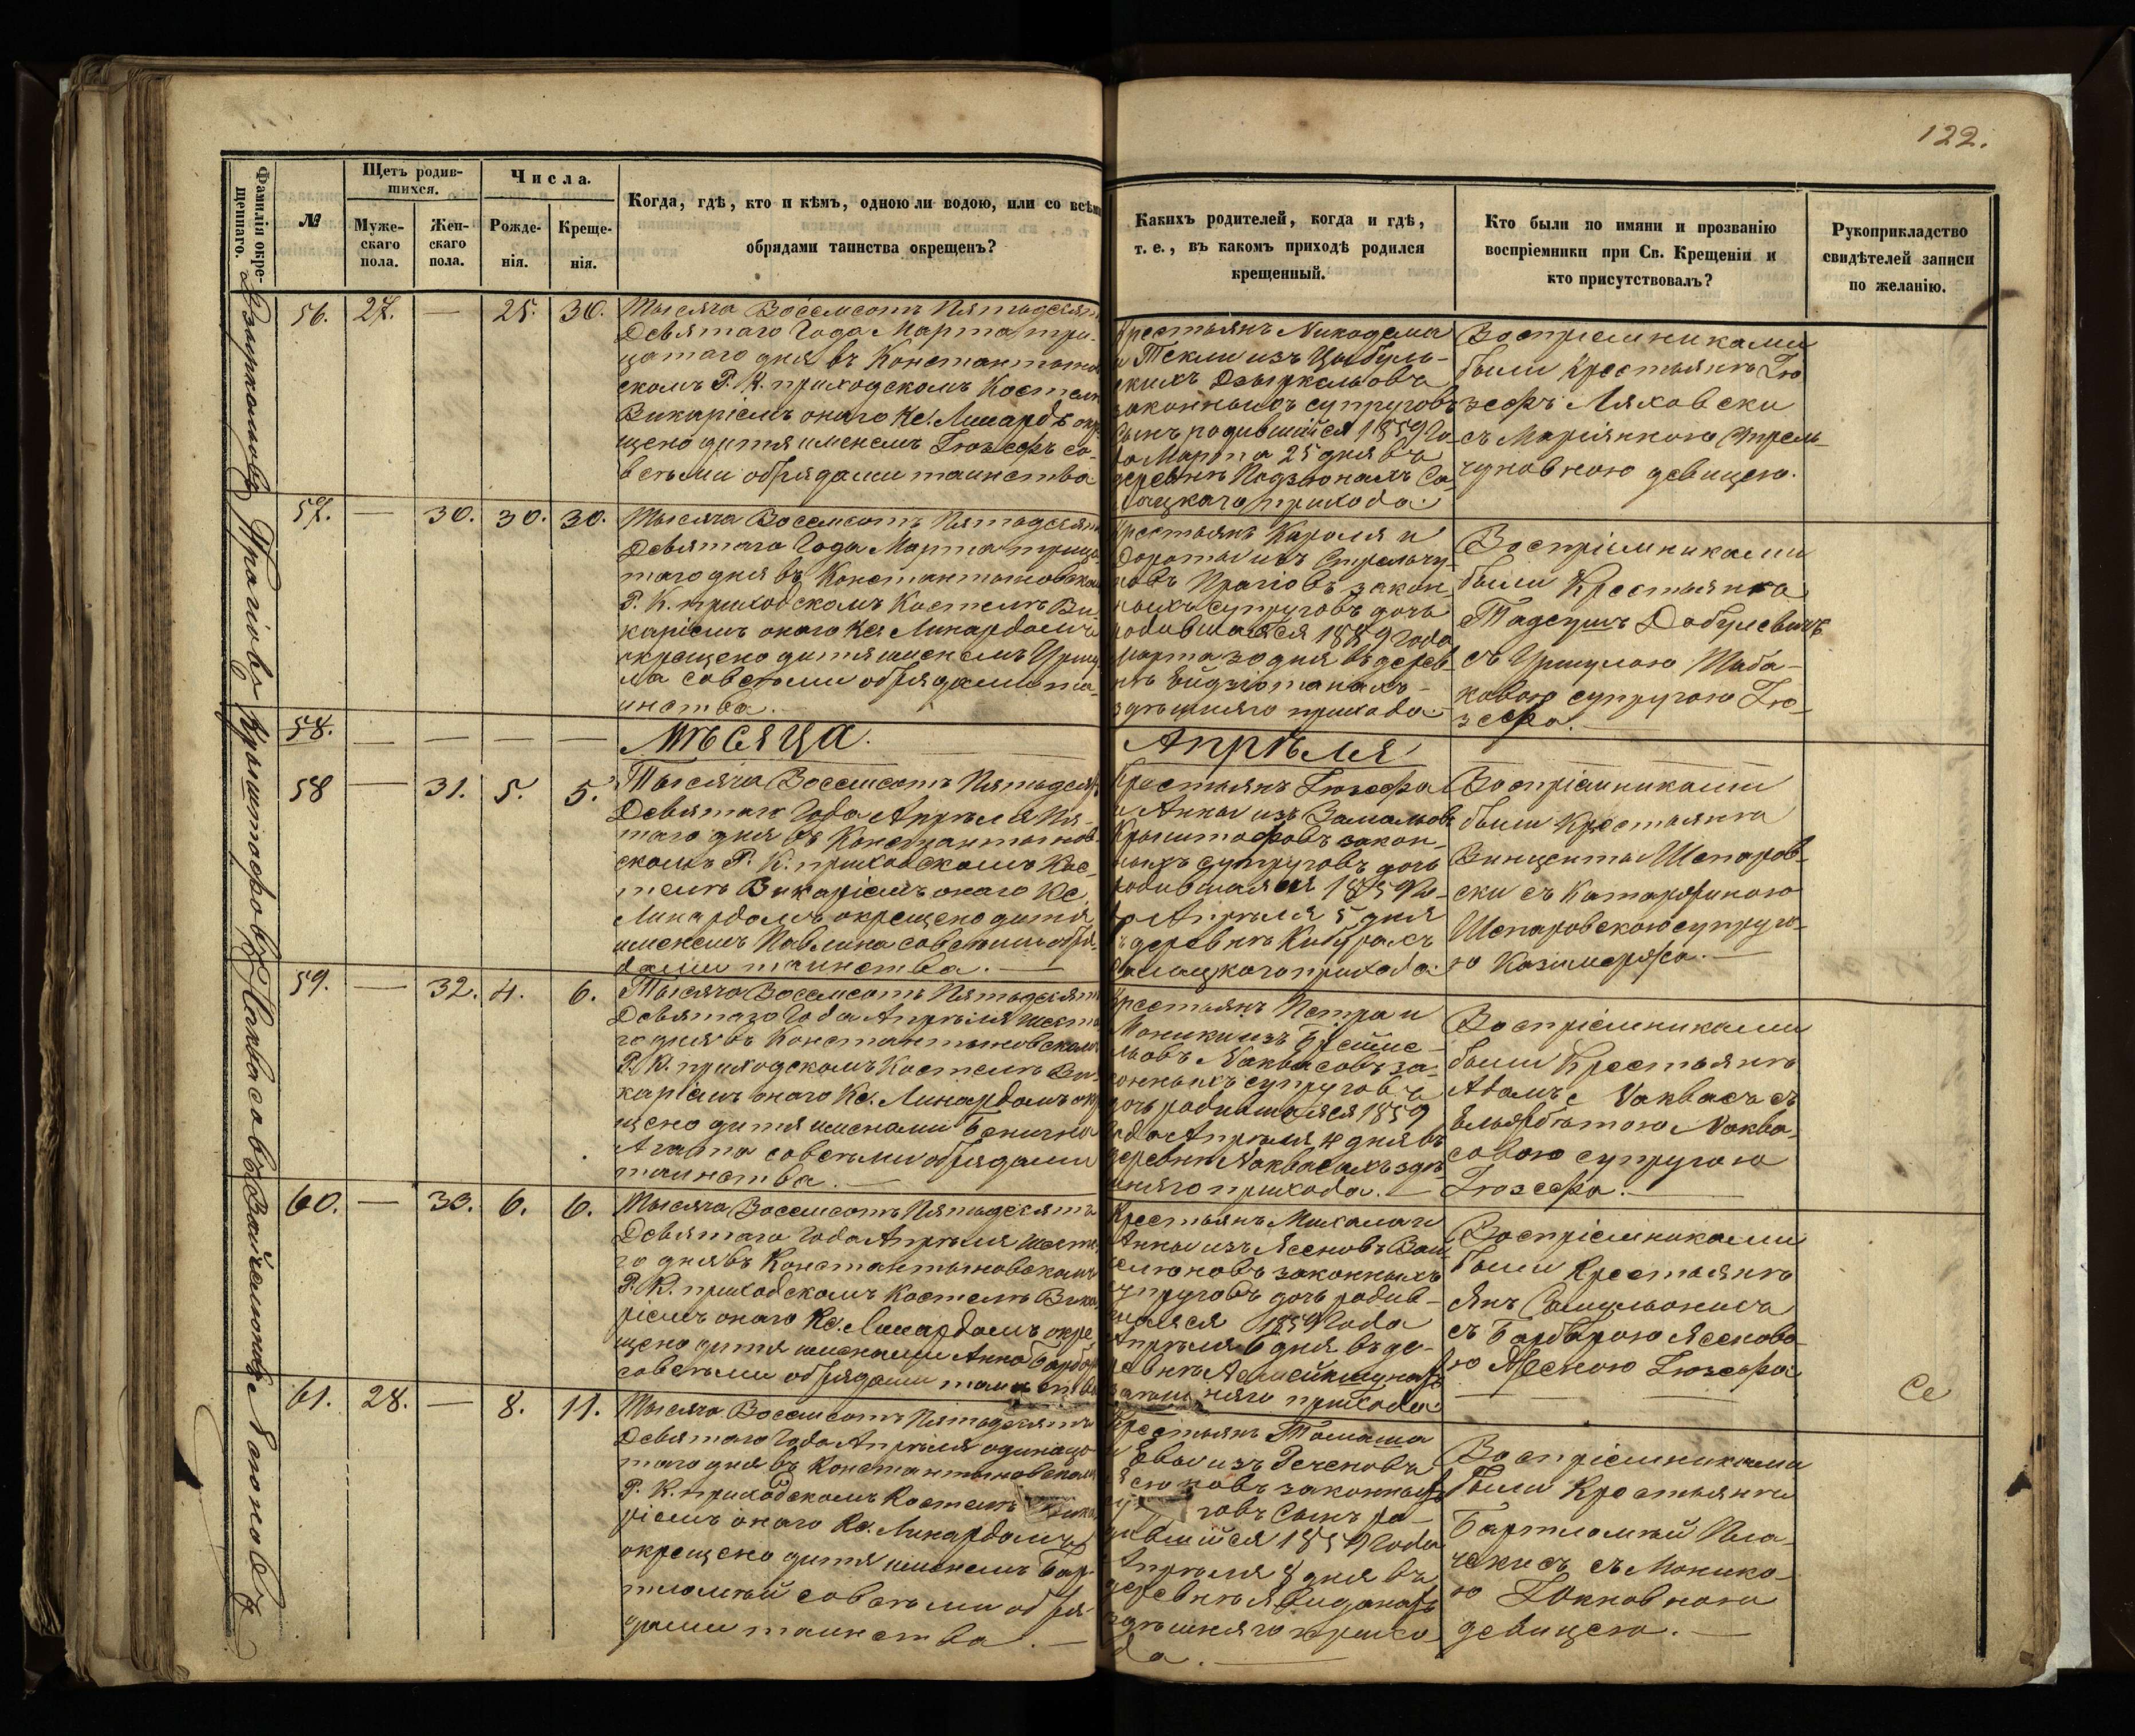 122.
Фамилія окре-
щеннаго.
№
Щетъ родив-
шихся.
Муже-
скаго
пола.
Жен-
скаго
пола.
Числа.
Рожде-
нія.
Креще-
нія.
Когда, гдѣ, кто и кѣмъ, одною ли водою, или со всѣми
обрядами таинства окрещенъ?
Какихъ родителей, когда и гдѣ,
т. е., въ какомъ приходѣ родился
крещенный.
Кто были по имяни и прозванію
воспріемники при Св. Крещеніи и
кто присутствовалъ?
Рукоприкладство
свидѣтелей записи
по желанію.
56. 27. — 25. 30.
Тысяча Восемсотъ Пятьдесятъ
Девятаго Года Марта три-
цатаго дня въ Константинов
скомъ Р. К. приходскомъ Костелѣ
Викаріемъ онаго Кс.
щено дитя именемъ Іюзефъ со
всѣми обрядами таинства
Крестьянъ Никодема
и Текли изъ Цыбуль-
скихъ
законныхъ супруговъ
сынъ родившійся 1859 Го-
да Марта 25 дня въ
деревнѣ
прихода.
Воспріемниками
были Крестьянъ Ію
зефъ Ляховски
съ Маріянною
девицею.
57. — 30. 30. 30.
Тысяча Восемсотъ Пятьдесятъ
Девятаго Года Марта трица
таго дня въ Константиновском
Р. К. приходскомъ Костелѣ Ви
каріемъ онаго Кс. Линардомъ
окрещено дитя именемъ Уршу
ла со всѣми обрядами та-
инства.
Крестьянъ Кароля и
Дороты изъ Стрельчу-
новъ Прагіовъ закон-
ныхъ супруговъ дочь
родившаяся 1859 Года
Марта 30 дня въ дерев-
нѣ
здѣшняго прихода.
Воспріемниками
были Крестьяна
Тадеушъ Добулевичъ
съ Уршулою Таба-
ковою супругою Ію-
зефа.
58. — — — —
Мѣсяца. Апрѣля
58 — 31. 5. 5.
Тысяча Восемсотъ Пятьдесятъ
Девятаго Года Апрѣля Пя-
таго дня въ Константинов-
скомъ Р. К. приходскомъ Кос-
телѣ Викаріемъ онаго Кс.
Линардомъ окрещено дитя
именемъ Павлина со всѣми обря-
дами таинства. —
Крестьянъ Іюзефа
и Анны изъ
Крыштофовъ закон-
ныхъ супруговъ дочь
родившаяся 1859 Го-
да Апрѣля 5 дня
въ деревнѣ Кибурахъ
прихода.
Воспріемниками
были Крестьяна
Винценты Шепаров-
ски съ Катаржиною
Шепаровскою супруго-
ю Казимержа. —
59. — 32. 4. 6.
Тысяча Восемсотъ Пятьдесятъ
Девятаго Года Апрѣля шеста
го дня въ Константиновскомъ
Р. К. приходскомъ Костелѣ Ви-
каріемъ онаго Кс. Линардомъ окре
щено дитя именами Бенигна
Агата со всѣми обрядами
таинства. —
Крестьянъ Петра и
Моники изъ
Наквасовъ за-
конныхъ супруговъ
дочь родившаяся 1859
Года Апрѣля 4 дня въ
деревнѣ Наквасахъ здѣ-
шняго прихода. —
Воспріемниками
были Крестьянъ
Адамъ Наквасъ съ
Ельжбѣтою Наква-
совою супругою
Іюзефа. —
60. — 33. 6. 6.
Тысяча Восемсотъ Пятьдесятъ
Девятаго Года Апрѣля шеста
го дня въ Константиновскомъ
Р. К. приходскомъ Костелѣ Вика
ріемъ онаго Кс. Линардомъ окре
щено дитя именами Анна Барбара
со всѣми обрядами таинства
Крестьянъ Михала и
Анны изъ Ясеновъ Вай
сюновъ законныхъ
супруговъ дочь родив-
шаяся 1859 Года
Апрѣля 6 дня въ де-
ревнѣ
здѣшняго прихода
Воспріемниками
были Крестьянъ
Янъ
съ Барбарою Ясеново
ю женою Іюзефа
Се
61. 28. — 8. 11.
Тысяча Восемсотъ Пятьдесятъ
Девятаго Года Апрѣля одинацо
таго дня въ Константиновскомъ
Р. К. приходскомъ Костелѣ Вика
ріемъ онаго Кс. Линардомъ
окрещено дитя именемъ Бар-
тломѣй со всѣми обря-
дами таинства. —
Крестьянъ Томаша
и Евы изъ
Ясюновъ законныхъ
супруговъ Сынъ ро-
дившійся 1859 Года
Апрѣля 8 дня въ
деревнѣ
здѣшняго прихо
да. —
Воспріемниками
были Крестьяны
Бартломѣй
съ Монико-
ю
девицею. —
Прагіовъ
Крыштофовъ
Наквасовъ
Вайсюновъ
Ясюновъ